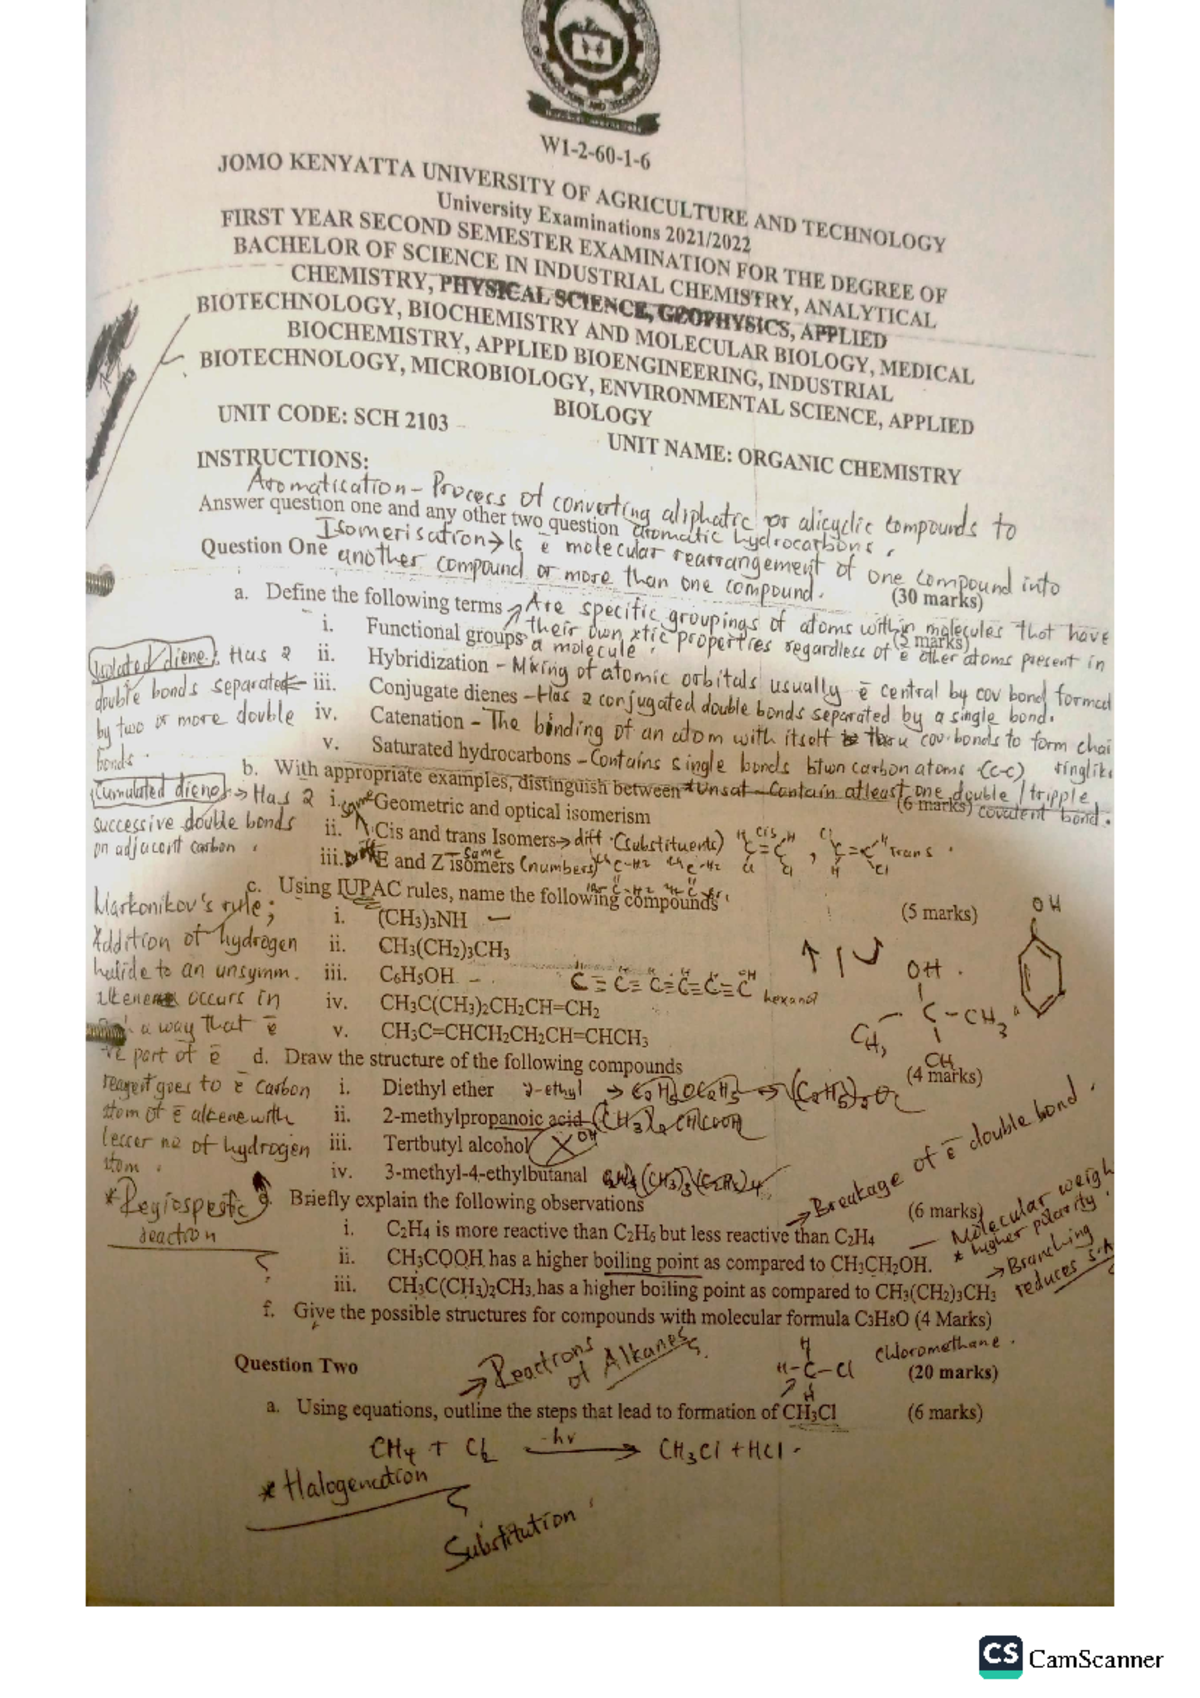 W1-2-60-1-6
JOMO KENYATTA UNIVERSITY OF AGRICULTURE AND TECHNOLOGY
University Examinations 2021/2022
FIRST YEAR SECOND SEMESTER EXAMINATION FOR THE DEGREE OF
BACHELOR OF SCIENCE IN INDUSTRIAL CHEMISTRY, ANALYTICAL
CHEMISTRY, PHYSICAL SCIENCE, GEOPHYSICS, APPLIED
BIOTECHNOLOGY, BIOCHEMISTRY AND MOLECULAR BIOLOGY, MEDICAL
BIOCHEMISTRY, APPLIED BIOENGINEERING, INDUSTRIAL
BIOTECHNOLOGY, MICROBIOLOGY, ENVIRONMENTAL SCIENCE, APPLIED
BIOLOGY
UNIT CODE: SCH 2103
UNIT NAME: ORGANIC CHEMISTRY
INSTRUCTIONS:
Aromatisation - Process of converting aliphatic or alicyclic compounds to
aromatic hydrocarbons.
Answer question one and any other two question
Isomerisation → Is ē molecular rearrangement of one compound into
another compound or more than one compound.
Question One
(30 marks)
a. Define the following terms
(5 marks)
Are specific groupings of atoms within molecules that have
their own xtic properties regardless of ē other atoms present in
a molecule.
i. Functional groups
ii. Hybridization - Mixing of atomic orbitals usually ē central by cov bond formed
iii. Conjugate dienes - Has 2 conjugated double bonds separated by a single bond.
iv. Catenation - The binding of an atom with itself thru cov. bonds to form chai
v. Saturated hydrocarbons - Contains single bonds btwn carbon atoms (C-C)
ringlik
Isolated diene. Has 2
double bonds separated
by two or more double
bonds.
b. With appropriate examples, distinguish between
* Unsat - Contain atleast one double / tripple
covalent bond.
(6 marks)
i. Geometric and optical isomerism
ii. Cis and trans Isomers → diff (substituents)
iii. E and Z isomers (numbers)
same
cis
Trans
Cumulated diene → Has 2
successive double bonds
on adjacent carbon.
c. Using IUPAC rules, name the following compounds
(5 marks)
i. (CH3)3NH
ii. CH3(CH2)3CH3
iii. C6H5OH
hexanol
iv. CH3C(CH3)2CH2CH=CH2
v. CH3C=CHCH2CH2CH=CHCH3
OH
OH
C - CH3
CH3
Markonikov's rule;
Addition of hydrogen
halide to an unsymm.
alkenes occurs in
a way that ē
-ve part of ē
reagent goes to ē carbon
atom of ē alkene with
lesser no of hydrogen
atom.
* Regiospecific
reaction
d. Draw the structure of the following compounds
(4 marks)
i. Diethyl ether
2-ethyl
ii. 2-methylpropanoic acid
iii. Tertbutyl alcohol
OH
iv. 3-methyl-4-ethylbutanal
e. Briefly explain the following observations
(6 marks)
Breakage of ē double bond.
i. C2H4 is more reactive than C2H6 but less reactive than C2H4
ii. CH3COOH has a higher boiling point as compared to CH3CH2OH.
iii. CH3C(CH3)2CH3, has a higher boiling point as compared to CH3(CH2)3CH3
Molecular weigh
* higher polarity.
→ Branching
reduces S.A
f. Give the possible structures for compounds with molecular formula C3H8O (4 Marks)
Question Two
(20 marks)
→ Reactions
of Alkanes
H
H-C-Cl
H
Chloromethane.
a. Using equations, outline the steps that lead to formation of CH3Cl
(6 marks)
CH4 + Cl2 hv → CH3Cl + HCl.
* Halogenation
Substitution
CS CamScanner